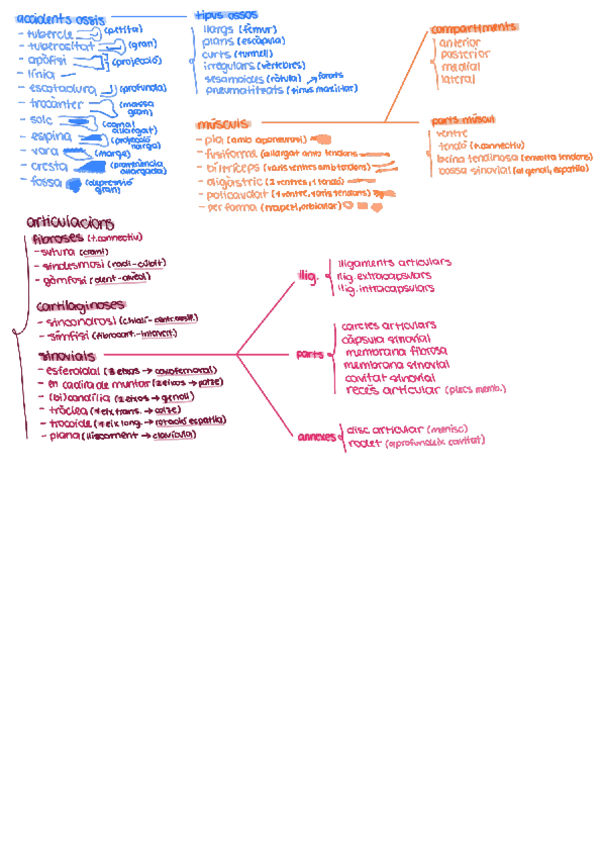 accidents ossis
- tubercle (petita)
- tuberositat (gran)
- apòfisi (projecció)
- línia
- escotadura (profunda)
- trocànter (massa gran)
- solc (canal allargat)
- espina (projecció llarga)
- vara (marge)
- cresta (prominència allargada)
- fossa (depressió gran)
tipus ossos
llargs (fèmur)
plans (escàpula)
curts (turmell)
irregulars (vèrtebres)
sesamoides (ròtula) → forats
pneumatitzats (sinus maxil·lar)
músculs
- pla (amb aponeurosi)
- fusiforme (allargat amb tendons
- bi/tríceps (varis ventres amb tendons)
- digàstric (2 ventres, 1 tendó)
- policaudat (1 ventre, varis tendons)
- per forma (trapezi, orbicular)
compartiments
anterior
posterior
medial
lateral
parts múscul
ventre
tendó (t.connectiu)
beina tendinosa (envolta tendons)
bossa sinovial (al genoll, espatlla)
articulacions
fibroses (t.connectiu)
- sutura (crani)
- sindesmosi (radi-cúbit)
- gòmfosi (dent-alvèol)
cartilaginoses
- sincondrosi
- símfisi (fibrocart.-intervert.)
sinovials
- esferoidal (3 eixos → coxofemoral)
- en cadira de muntar (2 eixos → polze)
- (bi)condília (2 eixos → genoll)
- tròclea (1 eix trans. → colze)
- trocoide (1 eix long. → rotació espatlla)
- plana (lliscament → clavícula)
llig.
lligaments articulars
llig. extracapsulars
llig. intracapsulars
parts
caretes articulars
càpsula sinovial
membrana fibrosa
membrana sinovial
cavitat sinovial
recés articular (plecs memb.)
annexes
disc articular (menisc)
rodet (aprofundeix cavitat)